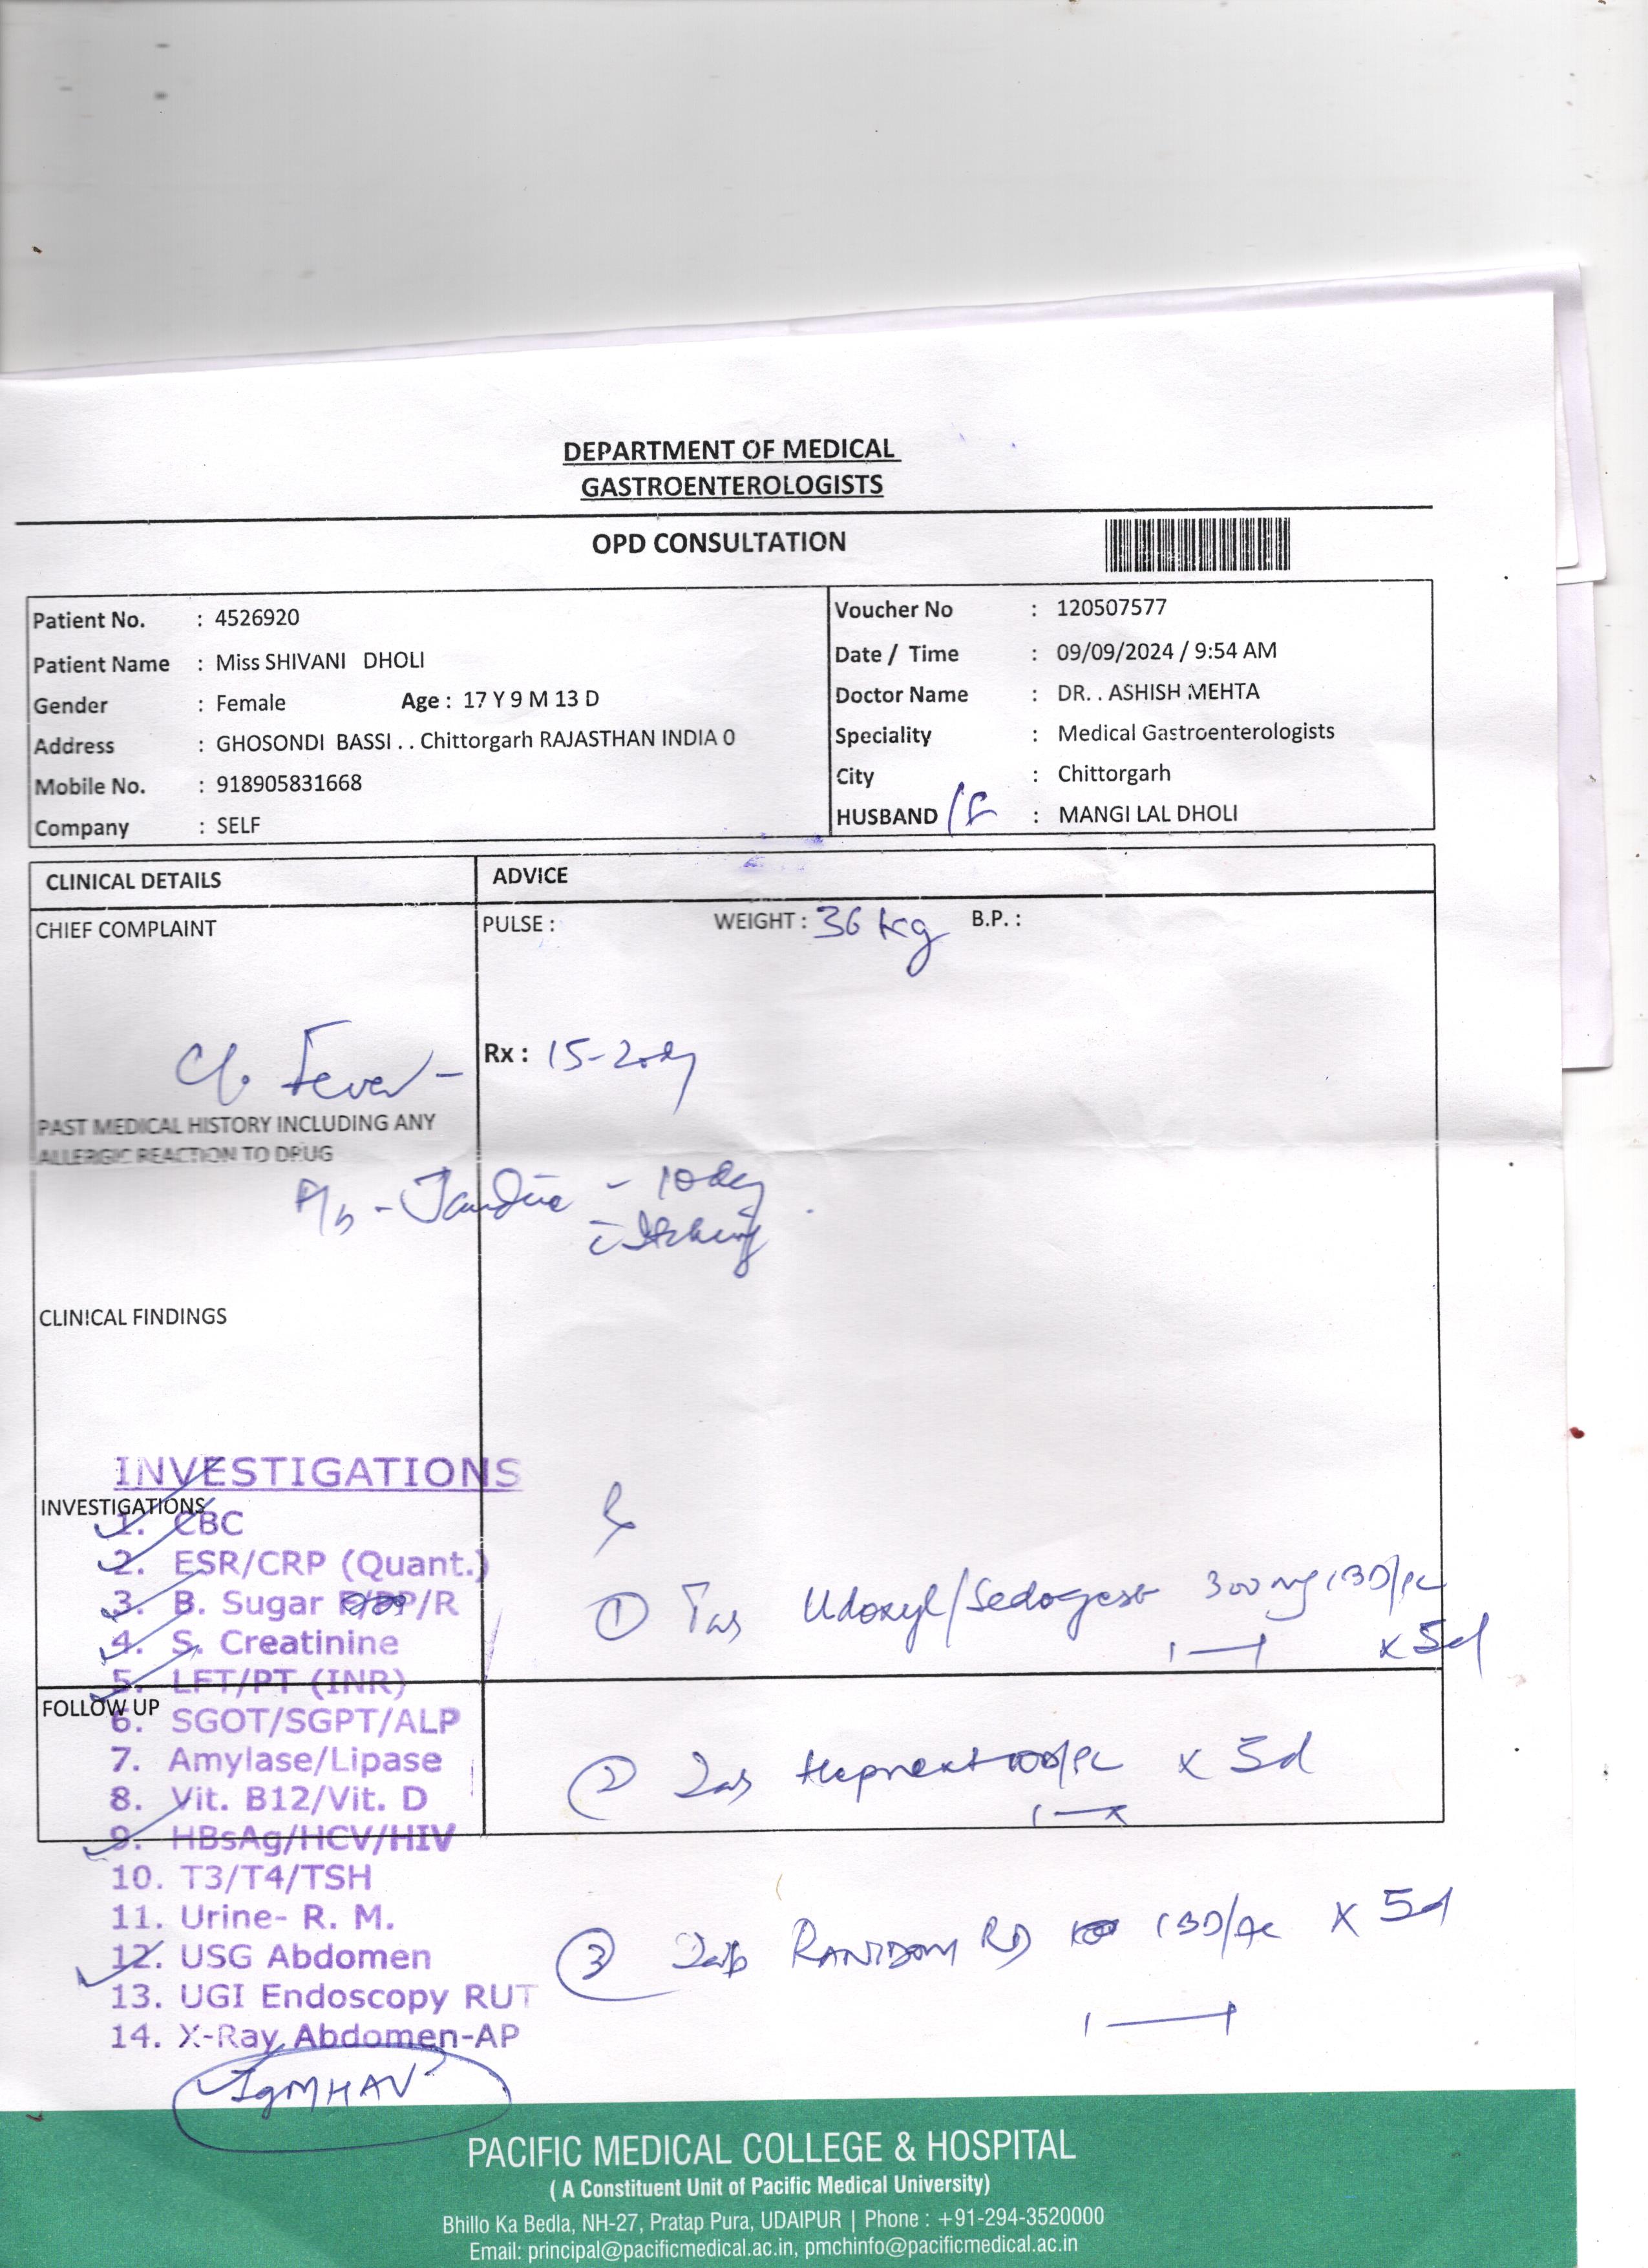 DEPARTMENT OF MEDICAL
GASTROENTEROLOGISTS
OPD CONSULTATION
Patient No. : 4526920
Patient Name : Miss SHIVANI DHOLI
Gender : Female Age : 17 Y 9 M 13 D
Address : GHOSONDI BASSI . . Chittorgarh RAJASTHAN INDIA 0
Mobile No. : 918905831668
Company : SELF
Voucher No : 120507577
Date / Time : 09/09/2024 / 9:54 AM
Doctor Name : DR. . ASHISH MEHTA
Speciality : Medical Gastroenterologists
City : Chittorgarh
HUSBAND /F : MANGI LAL DHOLI
CLINICAL DETAILS
ADVICE
CHIEF COMPLAINT
PULSE : WEIGHT : 36 kg B.P. :
C/o Fever - Rx : 15-20dy
PAST MEDICAL HISTORY INCLUDING ANY
ALLERGIC REACTION TO DRUG
- 10 day
Itching
CLINICAL FINDINGS
INVESTIGATIONS
INVESTIGATIONS
1. CBC
2. ESR/CRP (Quant.)
3. B. Sugar /R
4. S. Creatinine
5. LFT/PT (INR)
FOLLOW UP
6. SGOT/SGPT/ALP
7. Amylase/Lipase
8. Vit. B12/Vit. D
9. HBsAg/HCV/HIV
10. T3/T4/TSH
11. Urine- R. M.
12. USG Abdomen
13. UGI Endoscopy RUT
14. X-Ray Abdomen-AP
IgM HAV
① Udoxyl/ 300mg BD/PC
x 5d
② x 5d
③ Tab RANIDOM RD BD/AC X 5d
PACIFIC MEDICAL COLLEGE & HOSPITAL
( A Constituent Unit of Pacific Medical University)
Bhillo Ka Bedla, NH-27, Pratap Pura, UDAIPUR | Phone : +91-294-3520000
Email: principal@pacificmedical.ac.in, pmchinfo@pacificmedical.ac.in